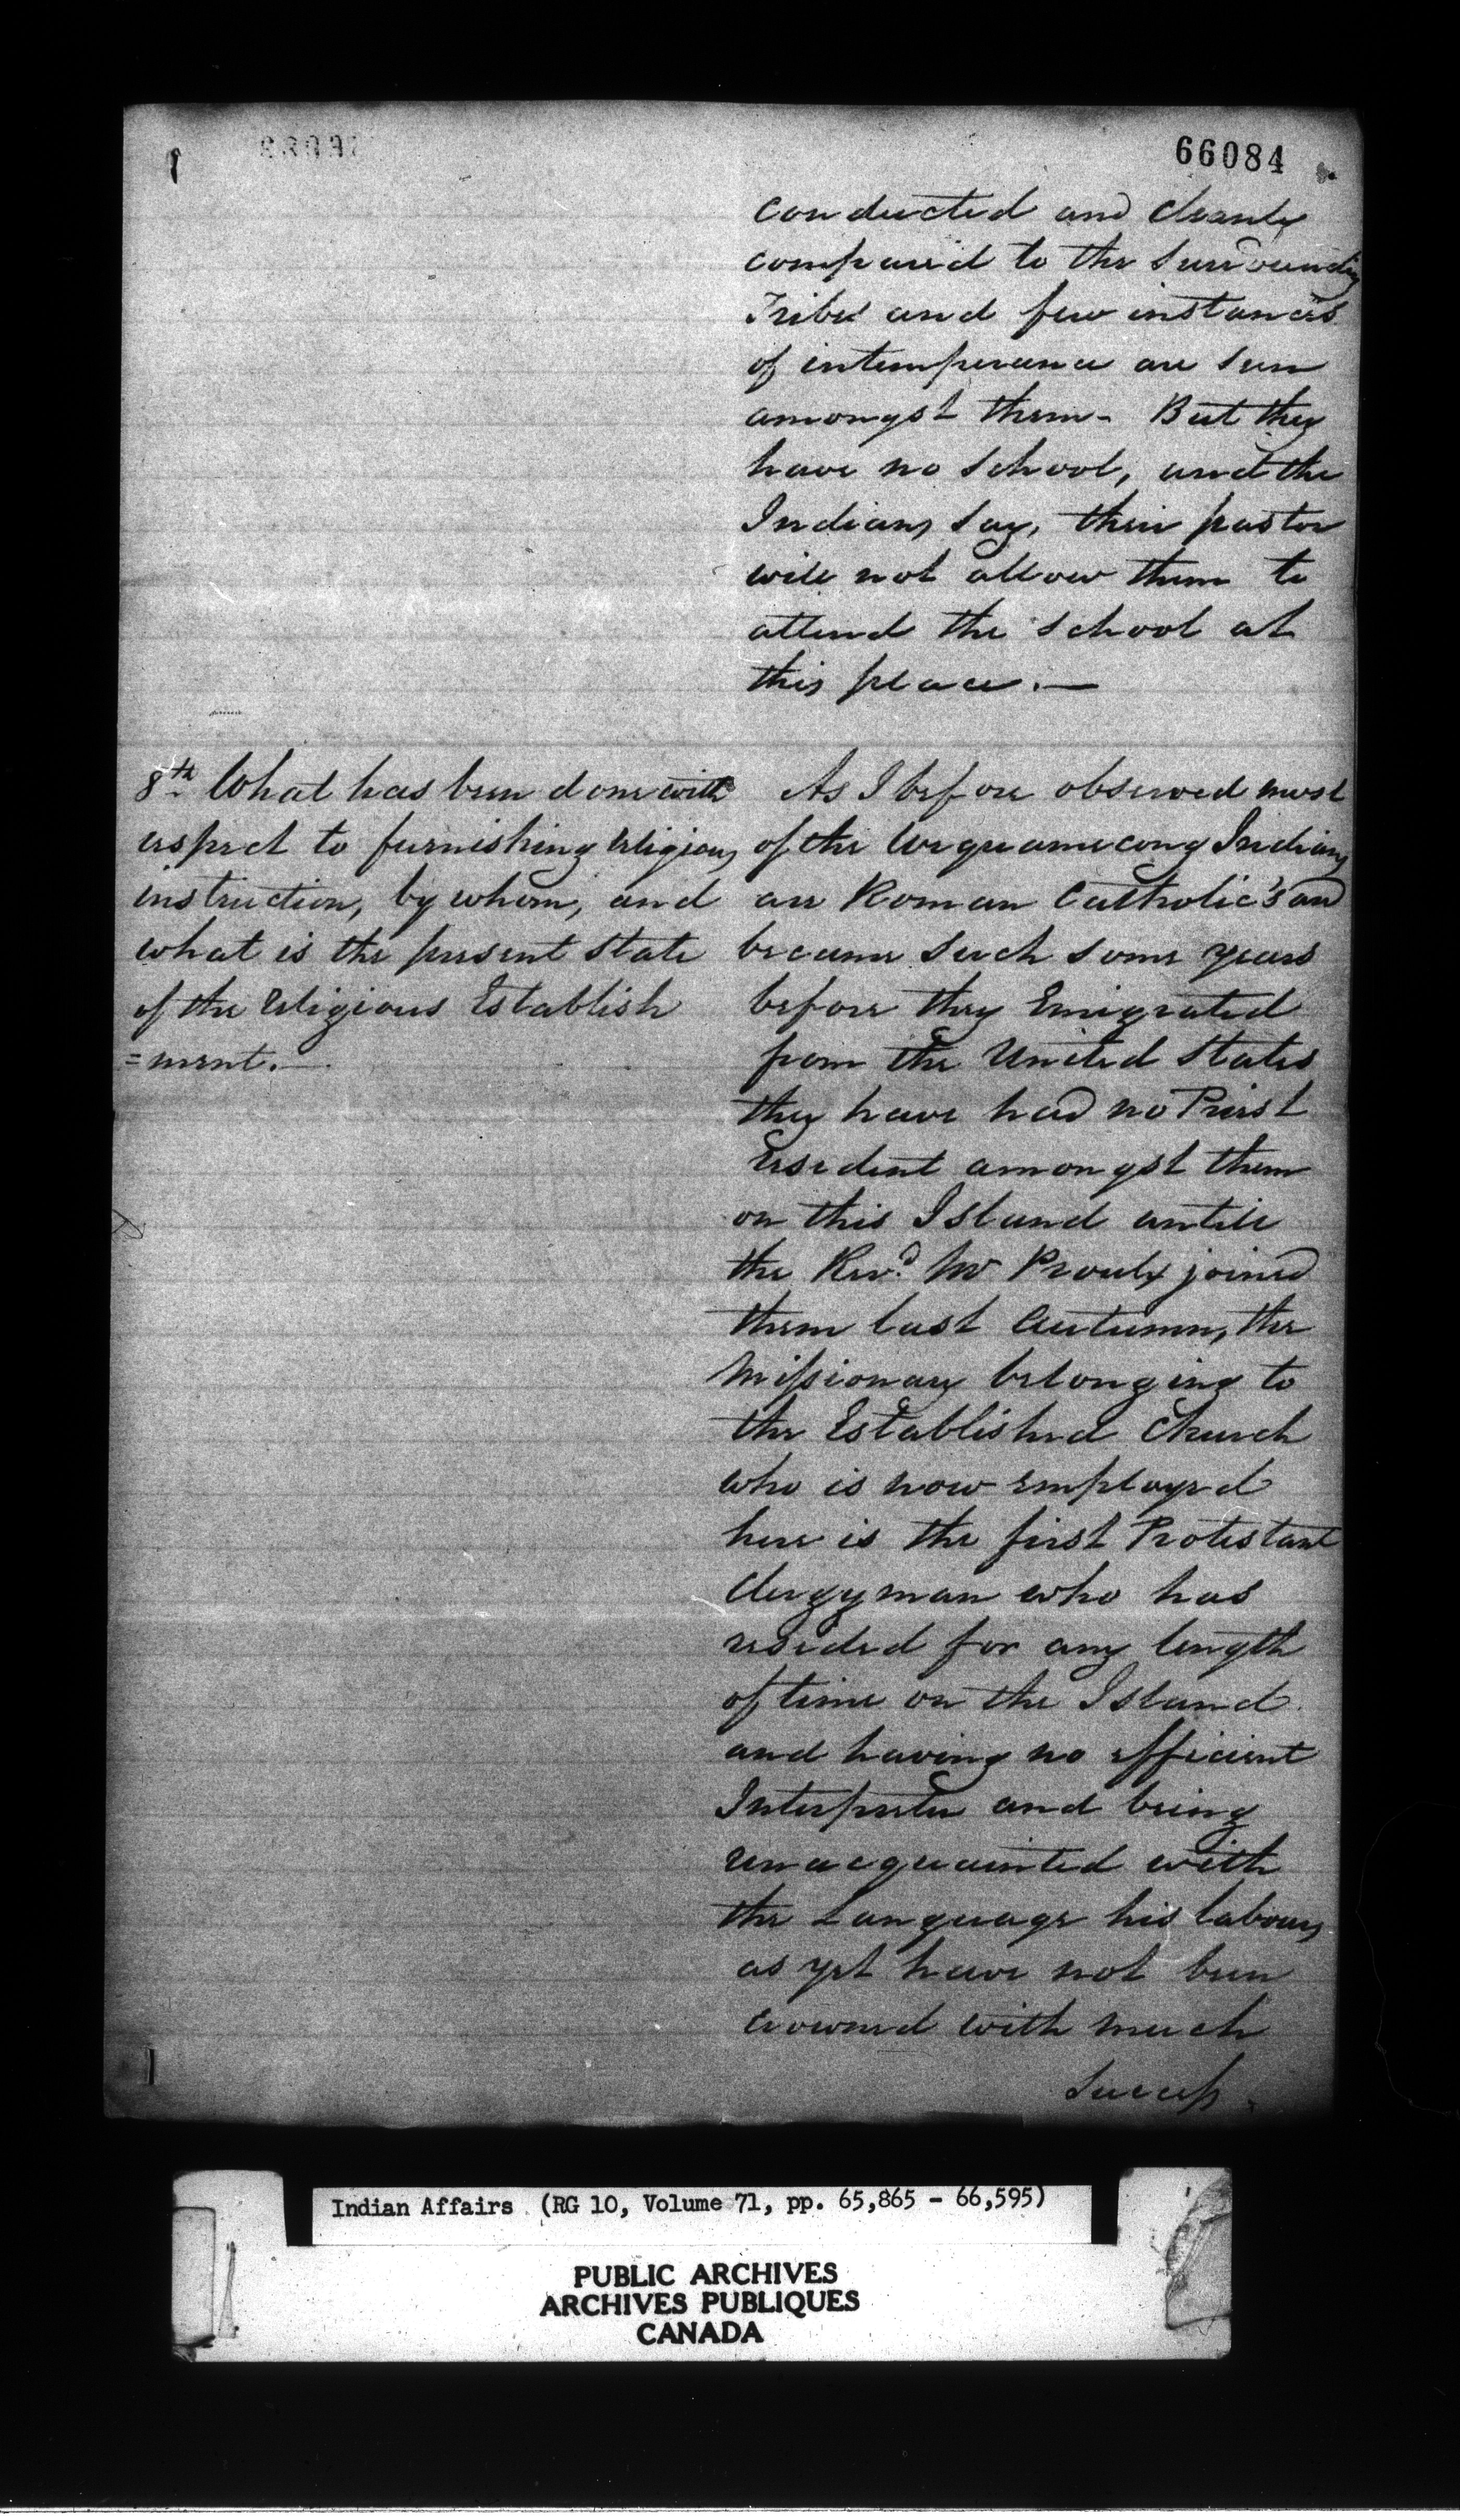 66084
conducted and cleanly
compared to the surrounding
Tribes and few instances
of intemperance are seen
amongst them - But they
have no school, and the
Indians say, their pastor
will not allow them to
attend the school at
this place. —
8th What has been done with
respect to furnishing religious
instruction, by whom, and
what is the present state
of the religious Establish
=ment. —
As I before observed most
of the Wequamecong Indians
are Roman Catholic's and
became such some years
before they Emigrated
from the United States
they have had no Priest
resident amongst them
on this Island untill
the Revd. Mr Proulx joined
them last Autumn, the
Missionary belonging to
the Established Church
who is now employed
here is the first Protestant
Clergyman who has
resided for any length
of time on the Island
and having no efficient
Interpreter and being
unacquainted with
the Language his labours
as yet have not been
crowned with much
success.
Indian Affairs (RG 10, Volume 71, pp. 65,865 - 66,595)
PUBLIC ARCHIVES
ARCHIVES PUBLIQUES
CANADA